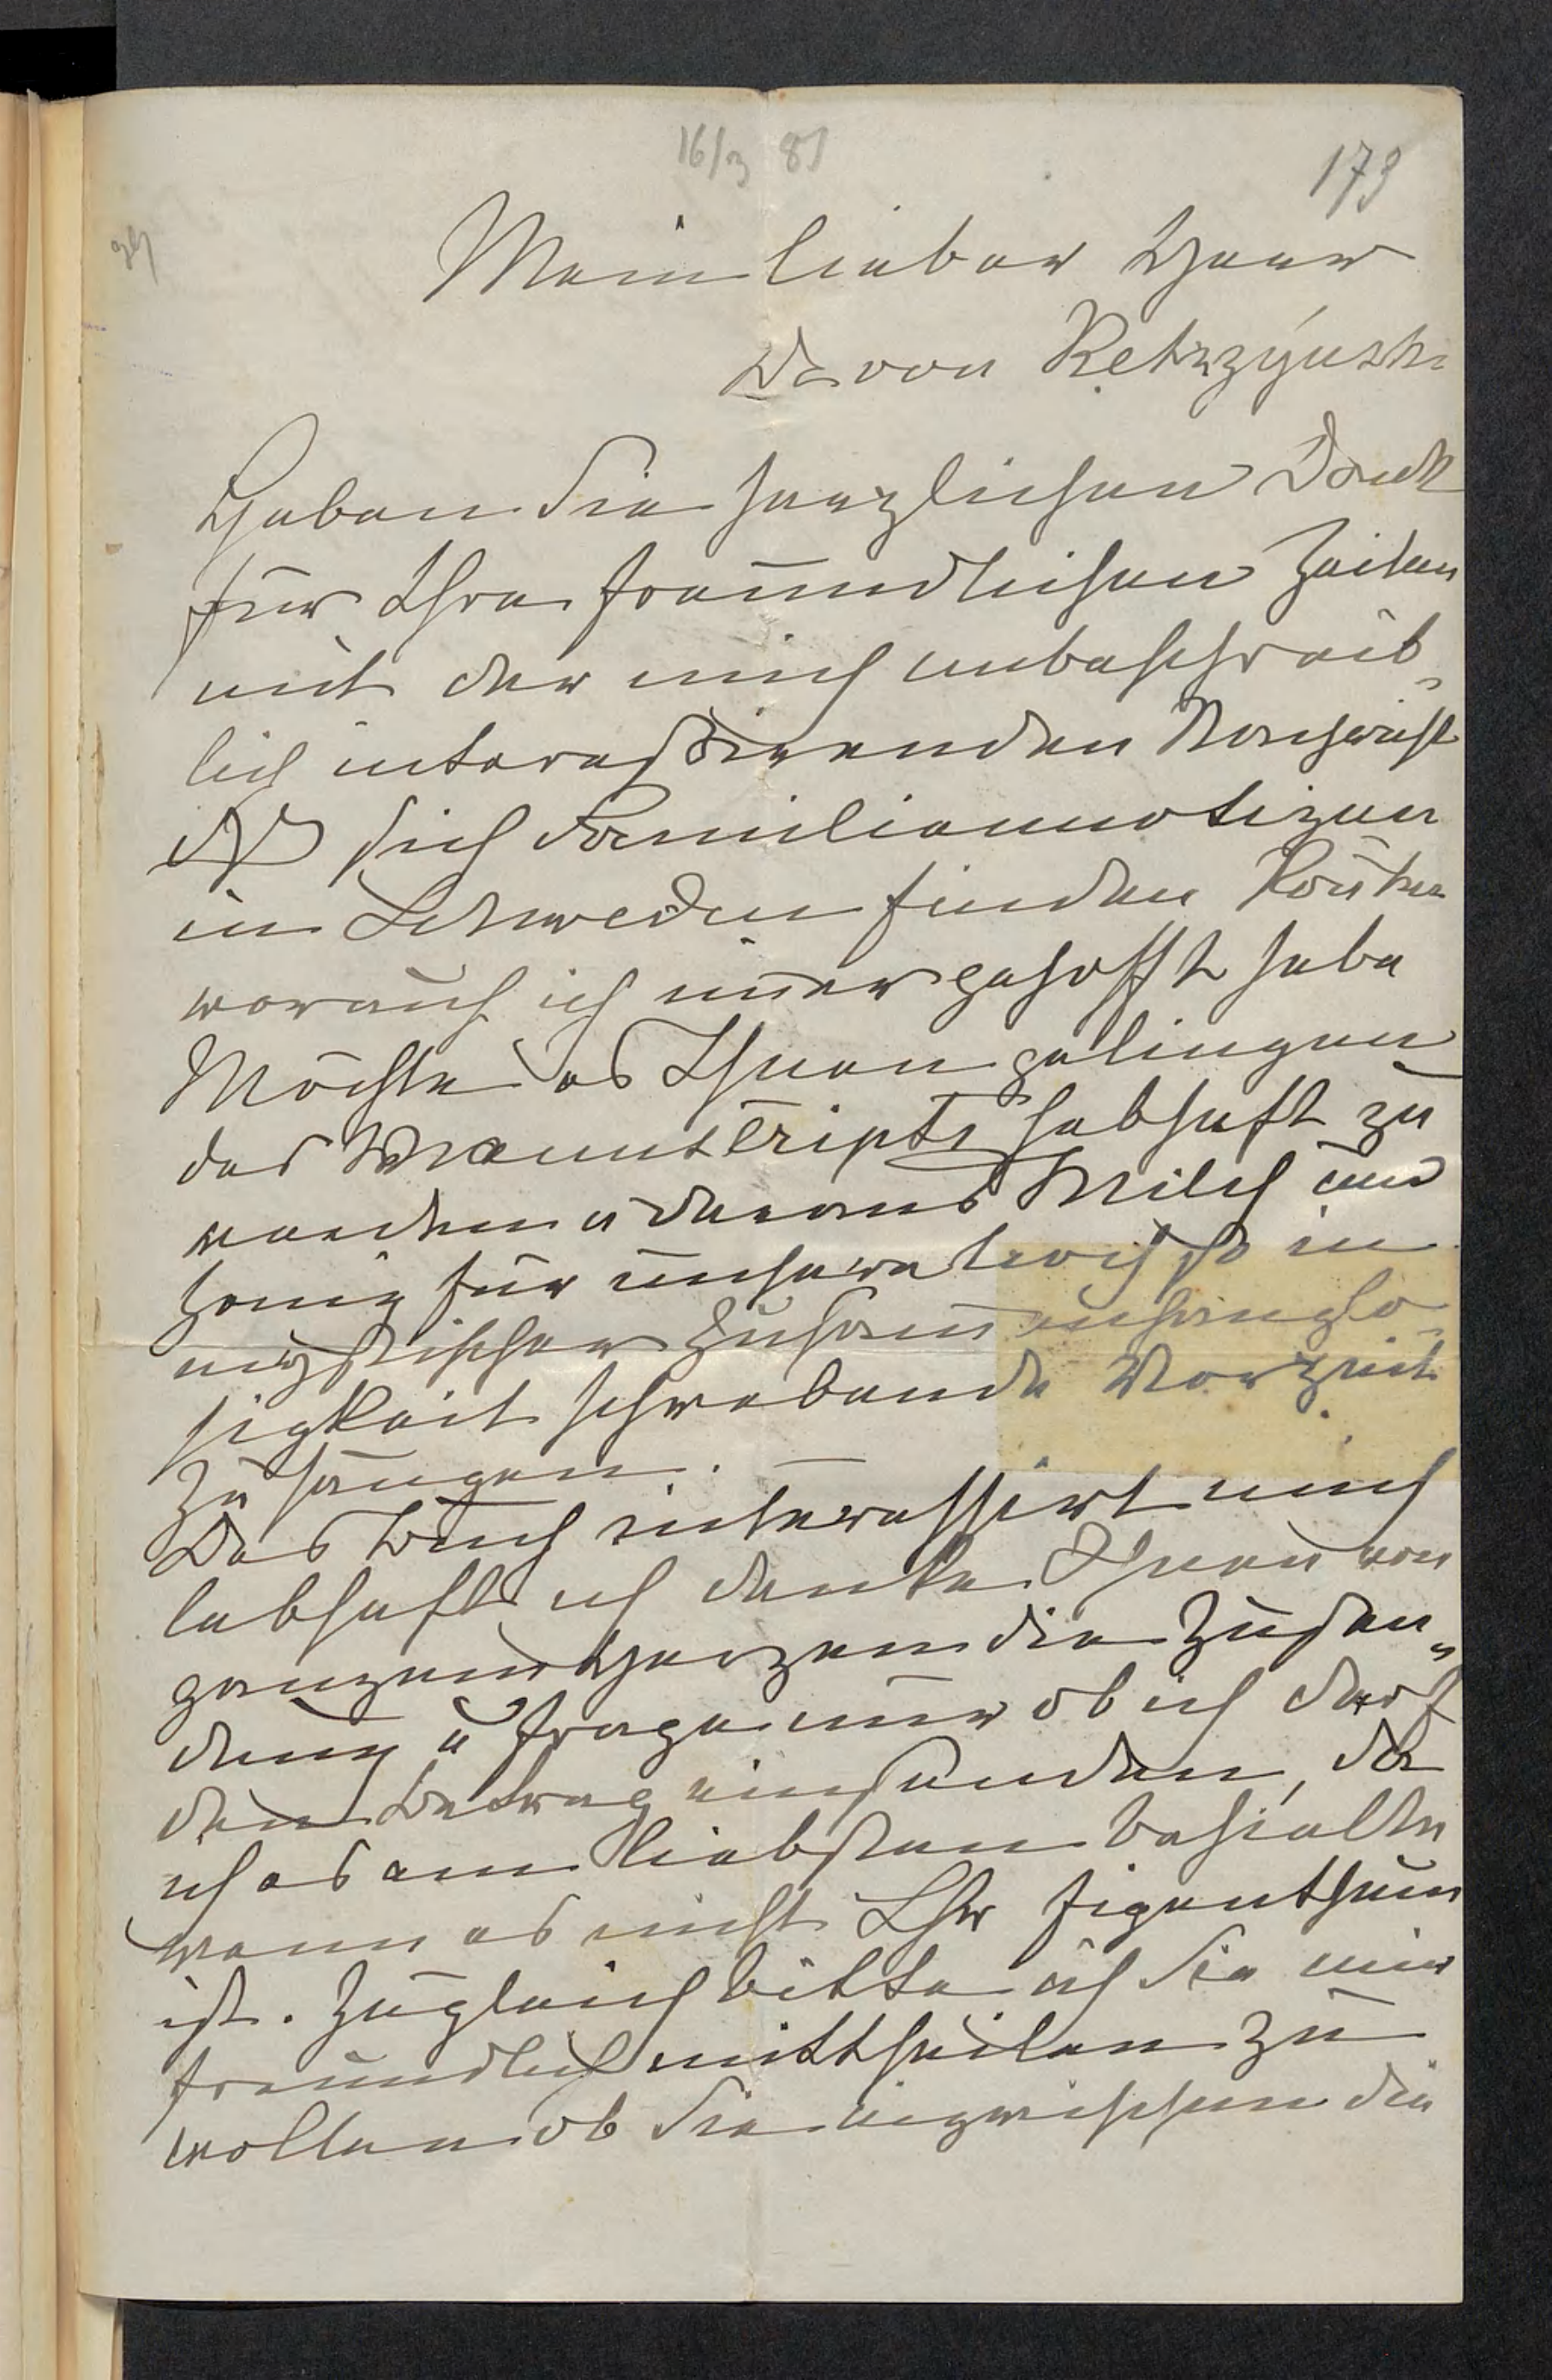 16/3 81
173
Mein lieber Herr
Dr von Ketrzyński
Haben Sie herzlichen Dank
für Ihre freundlichen Zeilen
mit der mich unbeschreib-
lich interessirenden Nachricht
daß sich Familiennotizen
in Schweden finden könten
worauf ich im̅er gehofft habe
Möchte es Ihnen gelingen
des Manuscripts habhaft zu
werden u daraus Milch und
Honig für unsere in
mystischer Zusam̅enhanglo-
sigkeit schwebende Vorzeit
zu saugen. —
Das Buch interessirt mich
lebhaft ich danke Ihnen von
ganzem Herzen die Zusen-
dung u frage nur ob ich darf
den Betrag einsenden, da
ich es am liebsten behielte
wenn es nicht Ihr Eigenthum
ist. Zugleich bitte ich Sie mir
freundlich mittheilen zu
wollen ob Sie inzwischen die